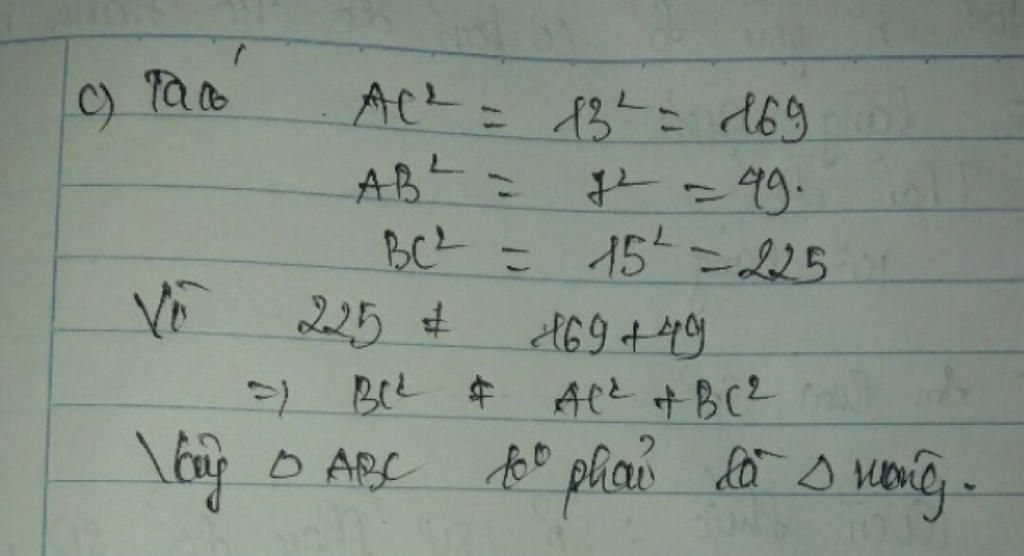 c) Ta có AC² = 13² = 169
AB² = 7² = 49.
BC² = 15² = 225
Vì 225 ≠ 169 + 49
=> BC² ≠ AC² + BC²
Vậy △ ABC ko phải là △ vuông.